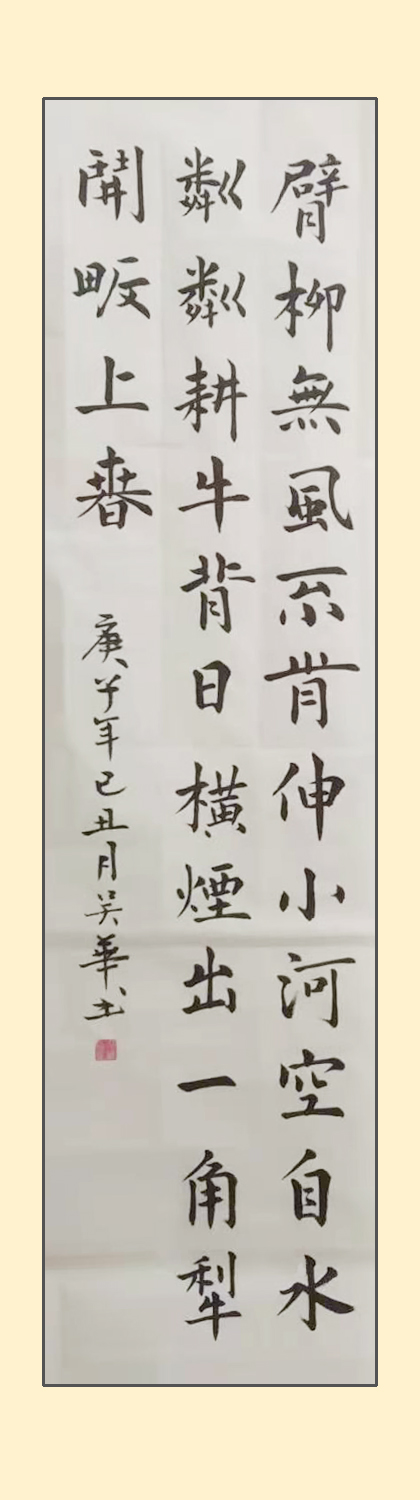 臂柳無風不肯伸小河空自水
粼粼耕牛背日橫煙出一角犁
開畈上春
庚子年己丑月吴華书